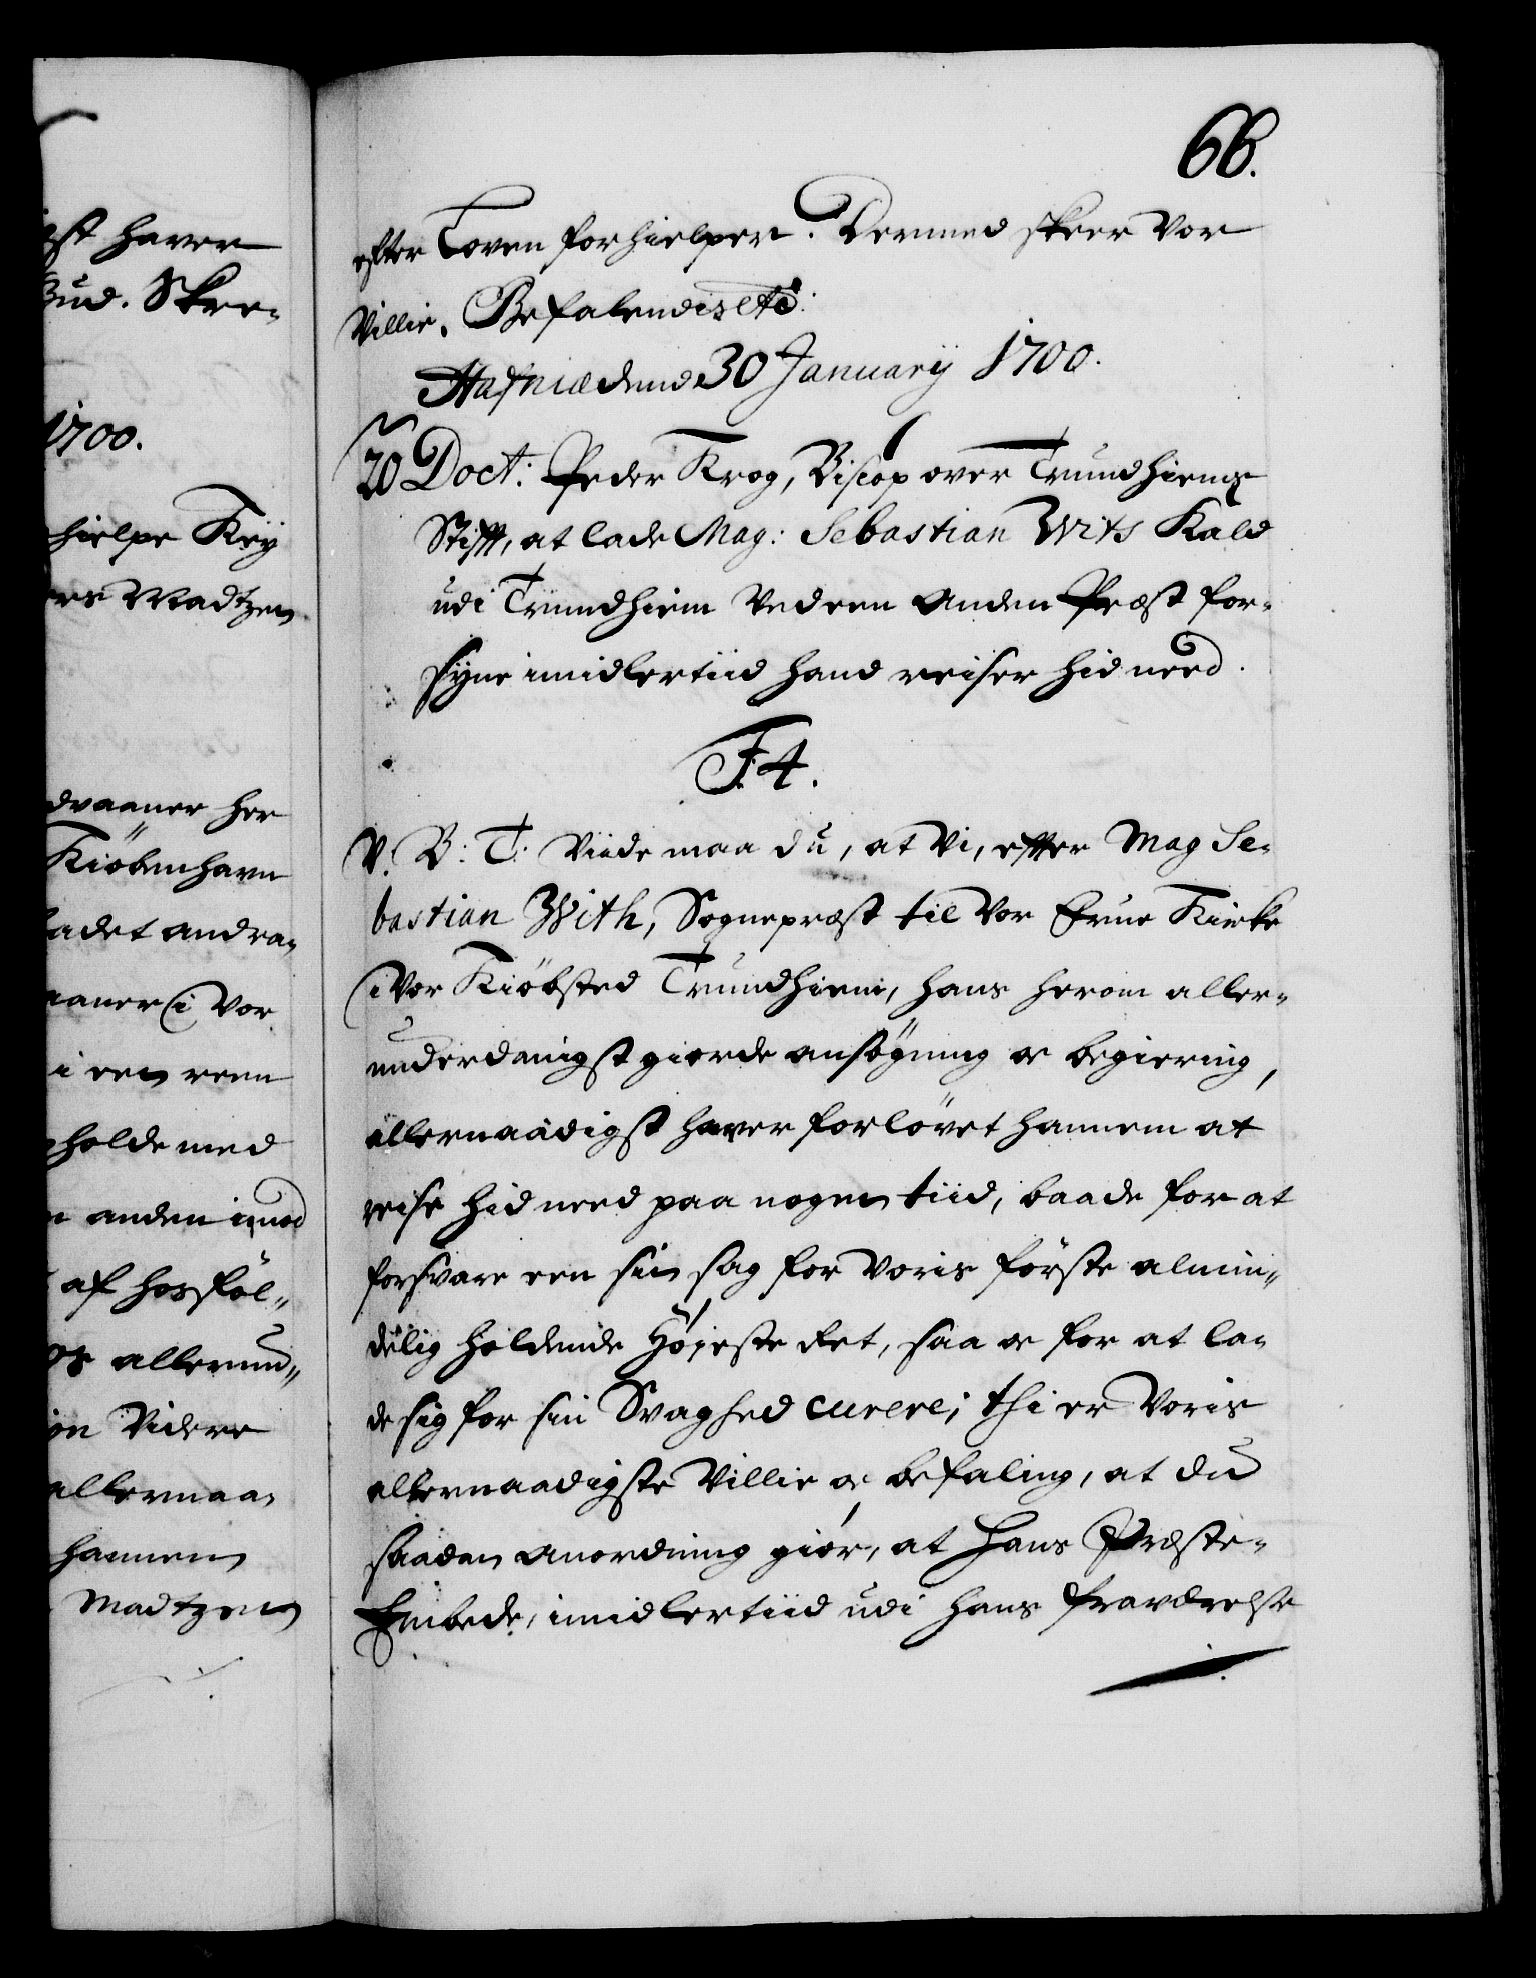 66.
efter Loven forhielper. Dermed skeer Vor
Villie. Befalendis etc:
Hafniæ dend 30 January 1700.
20 Doct: Peder Krog, Biscop over Trundhiems
Stifft, at lade Mag: Sebastian Wits Kald
udi Trundhiem Ved een Anden Præst for-
syne imidlertiid hand reiser hid need.
F. 4.
V. B: T: Viide maa du, at Vi, efter Mag Se-
bastian With, Sognepræst til Vor Frue Kirke
i Vor Kiöbsted Trundhiem, hans herom aller-
underdanigst giorde ansögning oc begiering,
allernaadigst haver forlövet hannem at
reise hid need paa nogen tiid, baade for at
forsvare een sin sag for Voris förste almin-
delig holdende Höjeste Ret, saa oc for at la-
de sig for sin Svaghed curere; thi er Voris
allernaadigste Villie oc befaling, at du
saadan Anordning giör, at Hans Præste-
Embede, imidlertiid udi hans fraværelse
st haver
Bud. Skre-
1700.
hielpe Key
ers Madtzen
dvaaner her
Kiöbenhavn
ladet andra-
aaner i Vor
i een reen
holde med
anden imod
af hosföl-
os allerun-
Videre
allernaa-
hannem
Madtzen